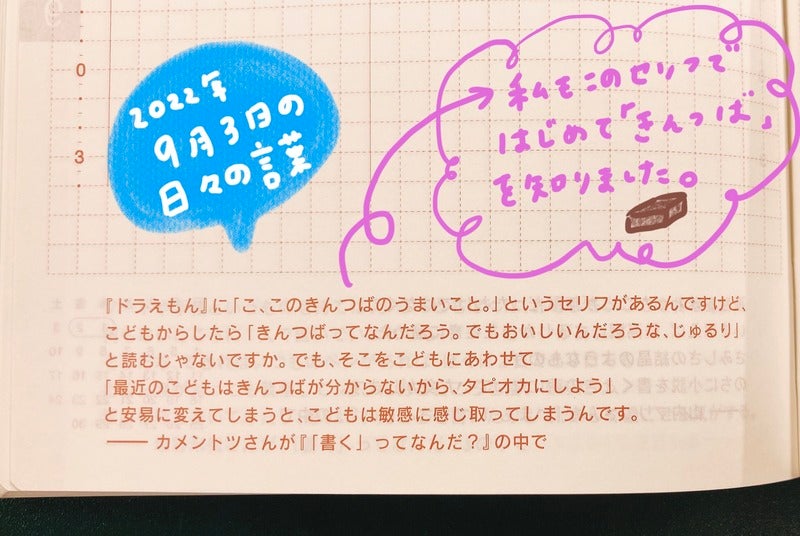 0
3
2022年
9月3日の
日々の言葉
私もこのセリフで
はじめて「きんつば」
を知りました。
『ドラえもん』に「こ、このきんつばのうまいこと。」というセリフがあるんですけど、
こどもからしたら「きんつばってなんだろう。でもおいしいんだろうな、じゅるり」
と読むじゃないですか。でも、そこをこどもにあわせて
「最近のこどもはきんつばが分からないから、タピオカにしよう」
と安易に変えてしまうと、こどもは敏感に感じ取ってしまうんです。
── カメントツさんが『「書く」ってなんだ？』の中で